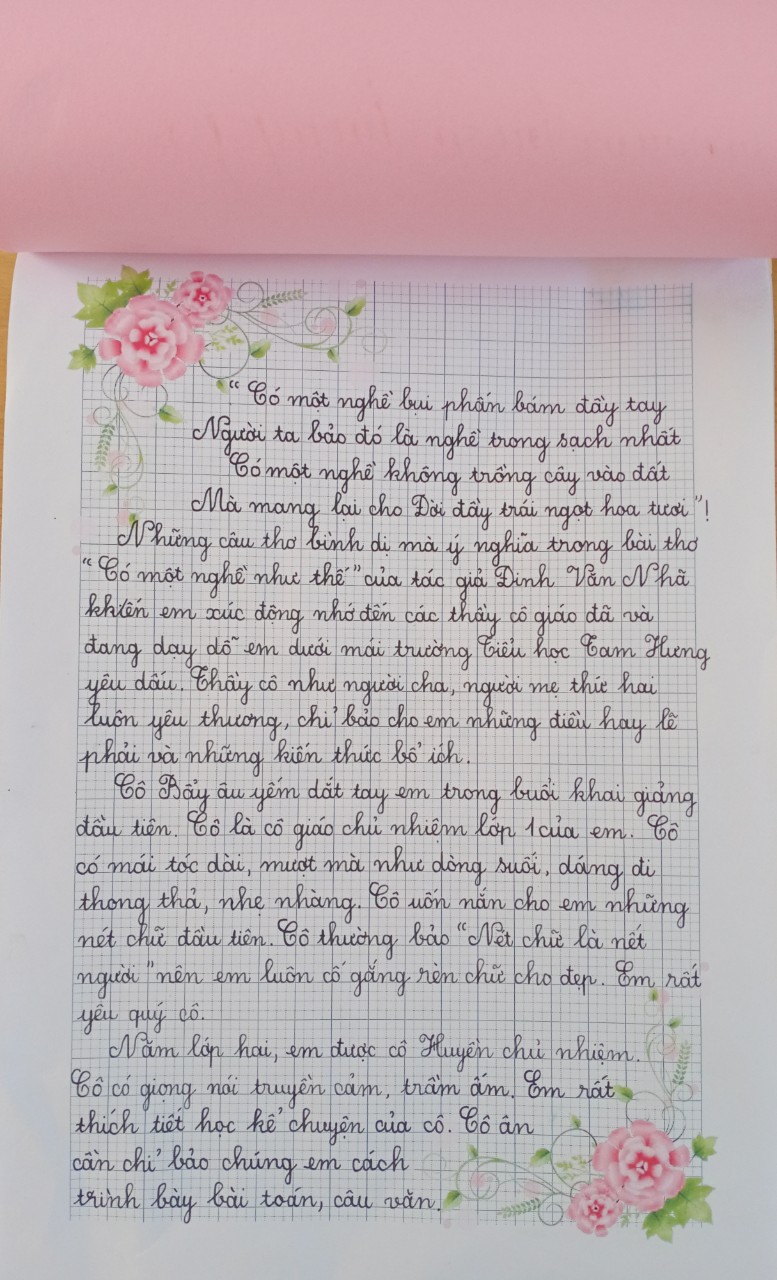 “Có một nghề bụi phấn bám đầy tay
Người ta bảo đó là nghề trong sạch nhất
Có một nghề không trồng cây vào đất
Mà mang lại cho Đời đầy trái ngọt hoa tươi”!
Những câu thơ bình dị mà ý nghĩa trong bài thơ
“Có một nghề như thế” của tác giả Đinh Văn Nhã
khiến em xúc động nhớ đến các thầy cô giáo đã và
đang dạy dỗ em dưới mái trường Tiểu học Tam Hưng
yêu dấu. Thầy cô như người cha, người mẹ thứ hai
luôn yêu thương, chỉ bảo cho em những điều hay lẽ
phải và những kiến thức bổ ích.
Cô Bẩy âu yếm dắt tay em trong buổi khai giảng
đầu tiên. Cô là cô giáo chủ nhiệm lớp 1 của em. Cô
có mái tóc dài, mượt mà như dòng suối, dáng đi
thong thả, nhẹ nhàng. Cô uốn nắn cho em những
nét chữ đầu tiên. Cô thường bảo “Nét chữ là nết
người” nên em luôn cố gắng rèn chữ cho đẹp. Em rất
yêu quý cô.
Năm lớp hai, em được cô Huyền chủ nhiệm.
Cô có giọng nói truyền cảm, trầm ấm. Em rất
thích tiết học kể chuyện của cô. Cô ân
cần chỉ bảo chúng em cách
trình bày bài toán, câu văn.